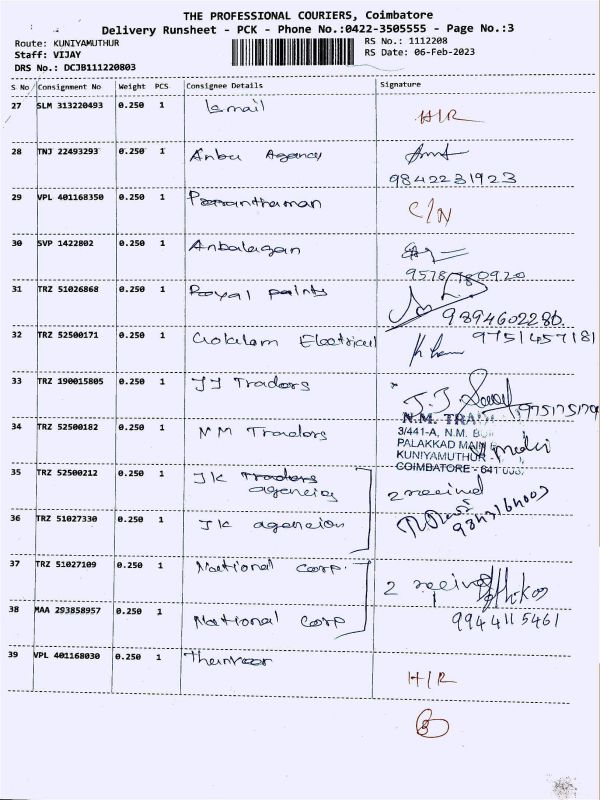 THE PROFESSIONAL COURIERS, Coimbatore
Delivery Runsheet - PCK - Phone No.:0422-3505555 - Page No.:3
Route: KUNIYAMUTHUR RS No.: 1112208
Staff: VIJAY RS Date: 06-Feb-2023
DRS No.: DCJB111220803
S No Consignment No Weight PCS Consignee Details Signature
27 SLM 313220493 0.250 1 Ismail H/R
28 TNJ 22493293 0.250 1 Anbu Agency
9842231923
29 VPL 401168350 0.250 1 Paranthaman C/N
30 SVP 1422802 0.250 1 Anbalagan
31 TRZ 51026868 0.250 1 Royal paints
9894602286
32 TRZ 52500171 0.250 1 Gokulam Electrical 9751457181
33 TRZ 190015805 0.250 1 JJ Traders
34 TRZ 52500182 0.250 1 NM Traders
N.M.
3/441-A, N.M.
PALAKKAD MAIN
KUNIYAMUTHUR
COIMBATORE - 641
35 TRZ 52500212 0.250 1 JK Traders
agencies 2 received
36 TRZ 51027330 0.250 1 JK agencies
37 TRZ 51027109 0.250 1 National Corp. 2 received
38 MAA 293858957 0.250 1 National Corp 9944115461
39 VPL 401168030 0.250 1 H/R